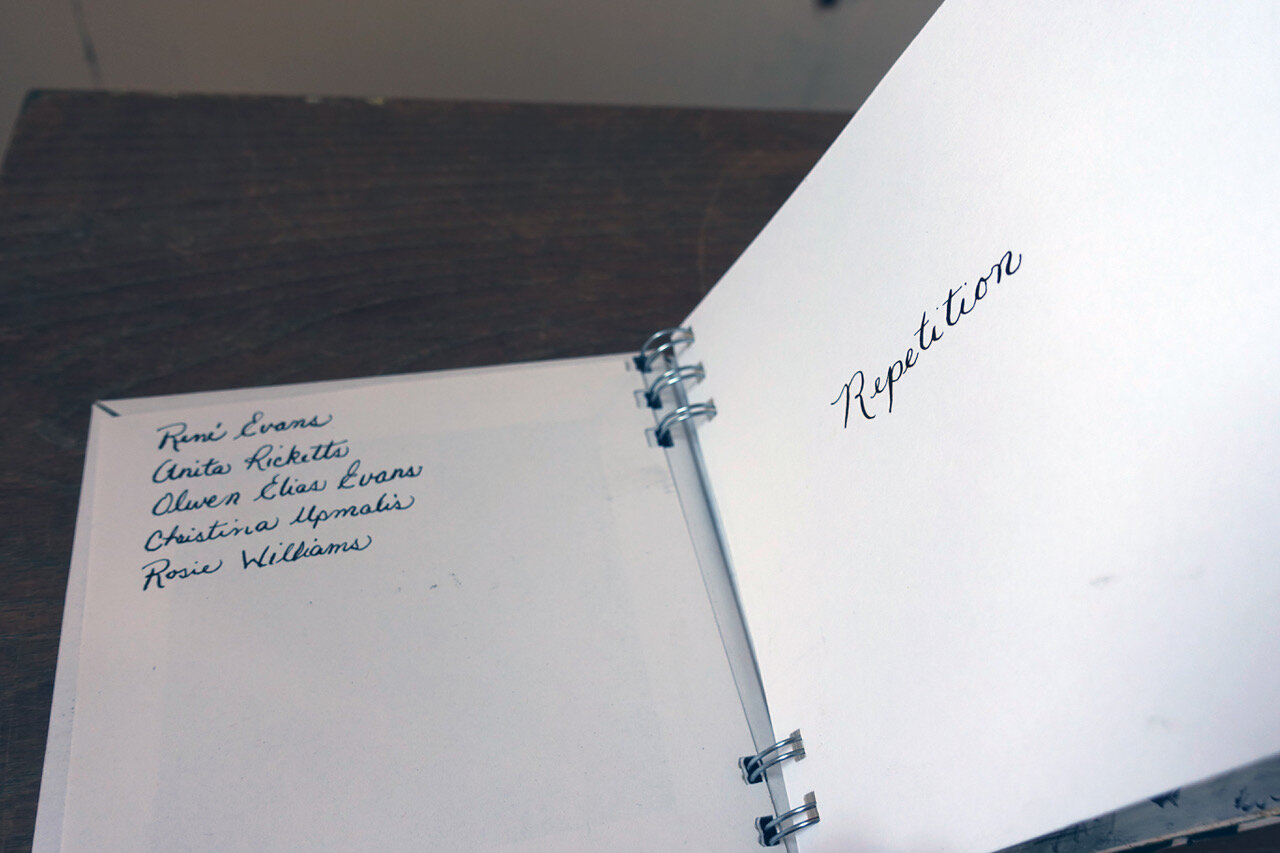 René Evans
Anita Ricketts
Olwen Elias Evans
Christina Upmalis
Rosie Williams
Repetition